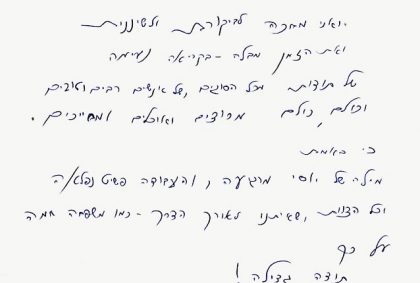 ואני מחכה לביקורת ולשיננית
ואת הזמן מבלה - בקריאה נעימה
של תודות מכל הסוגים, של אנשים רבים וטובים
וכולם, כולם מרוצים ואוכלים ומחייכים.
כי באמת
מילה של יוסי מרגיעה, והעבודה פשוט נפלאה
וכל הצוות, שאיתנו לאורך הדרך - כמו משפחה חמה
על כך
תודה גדולה!